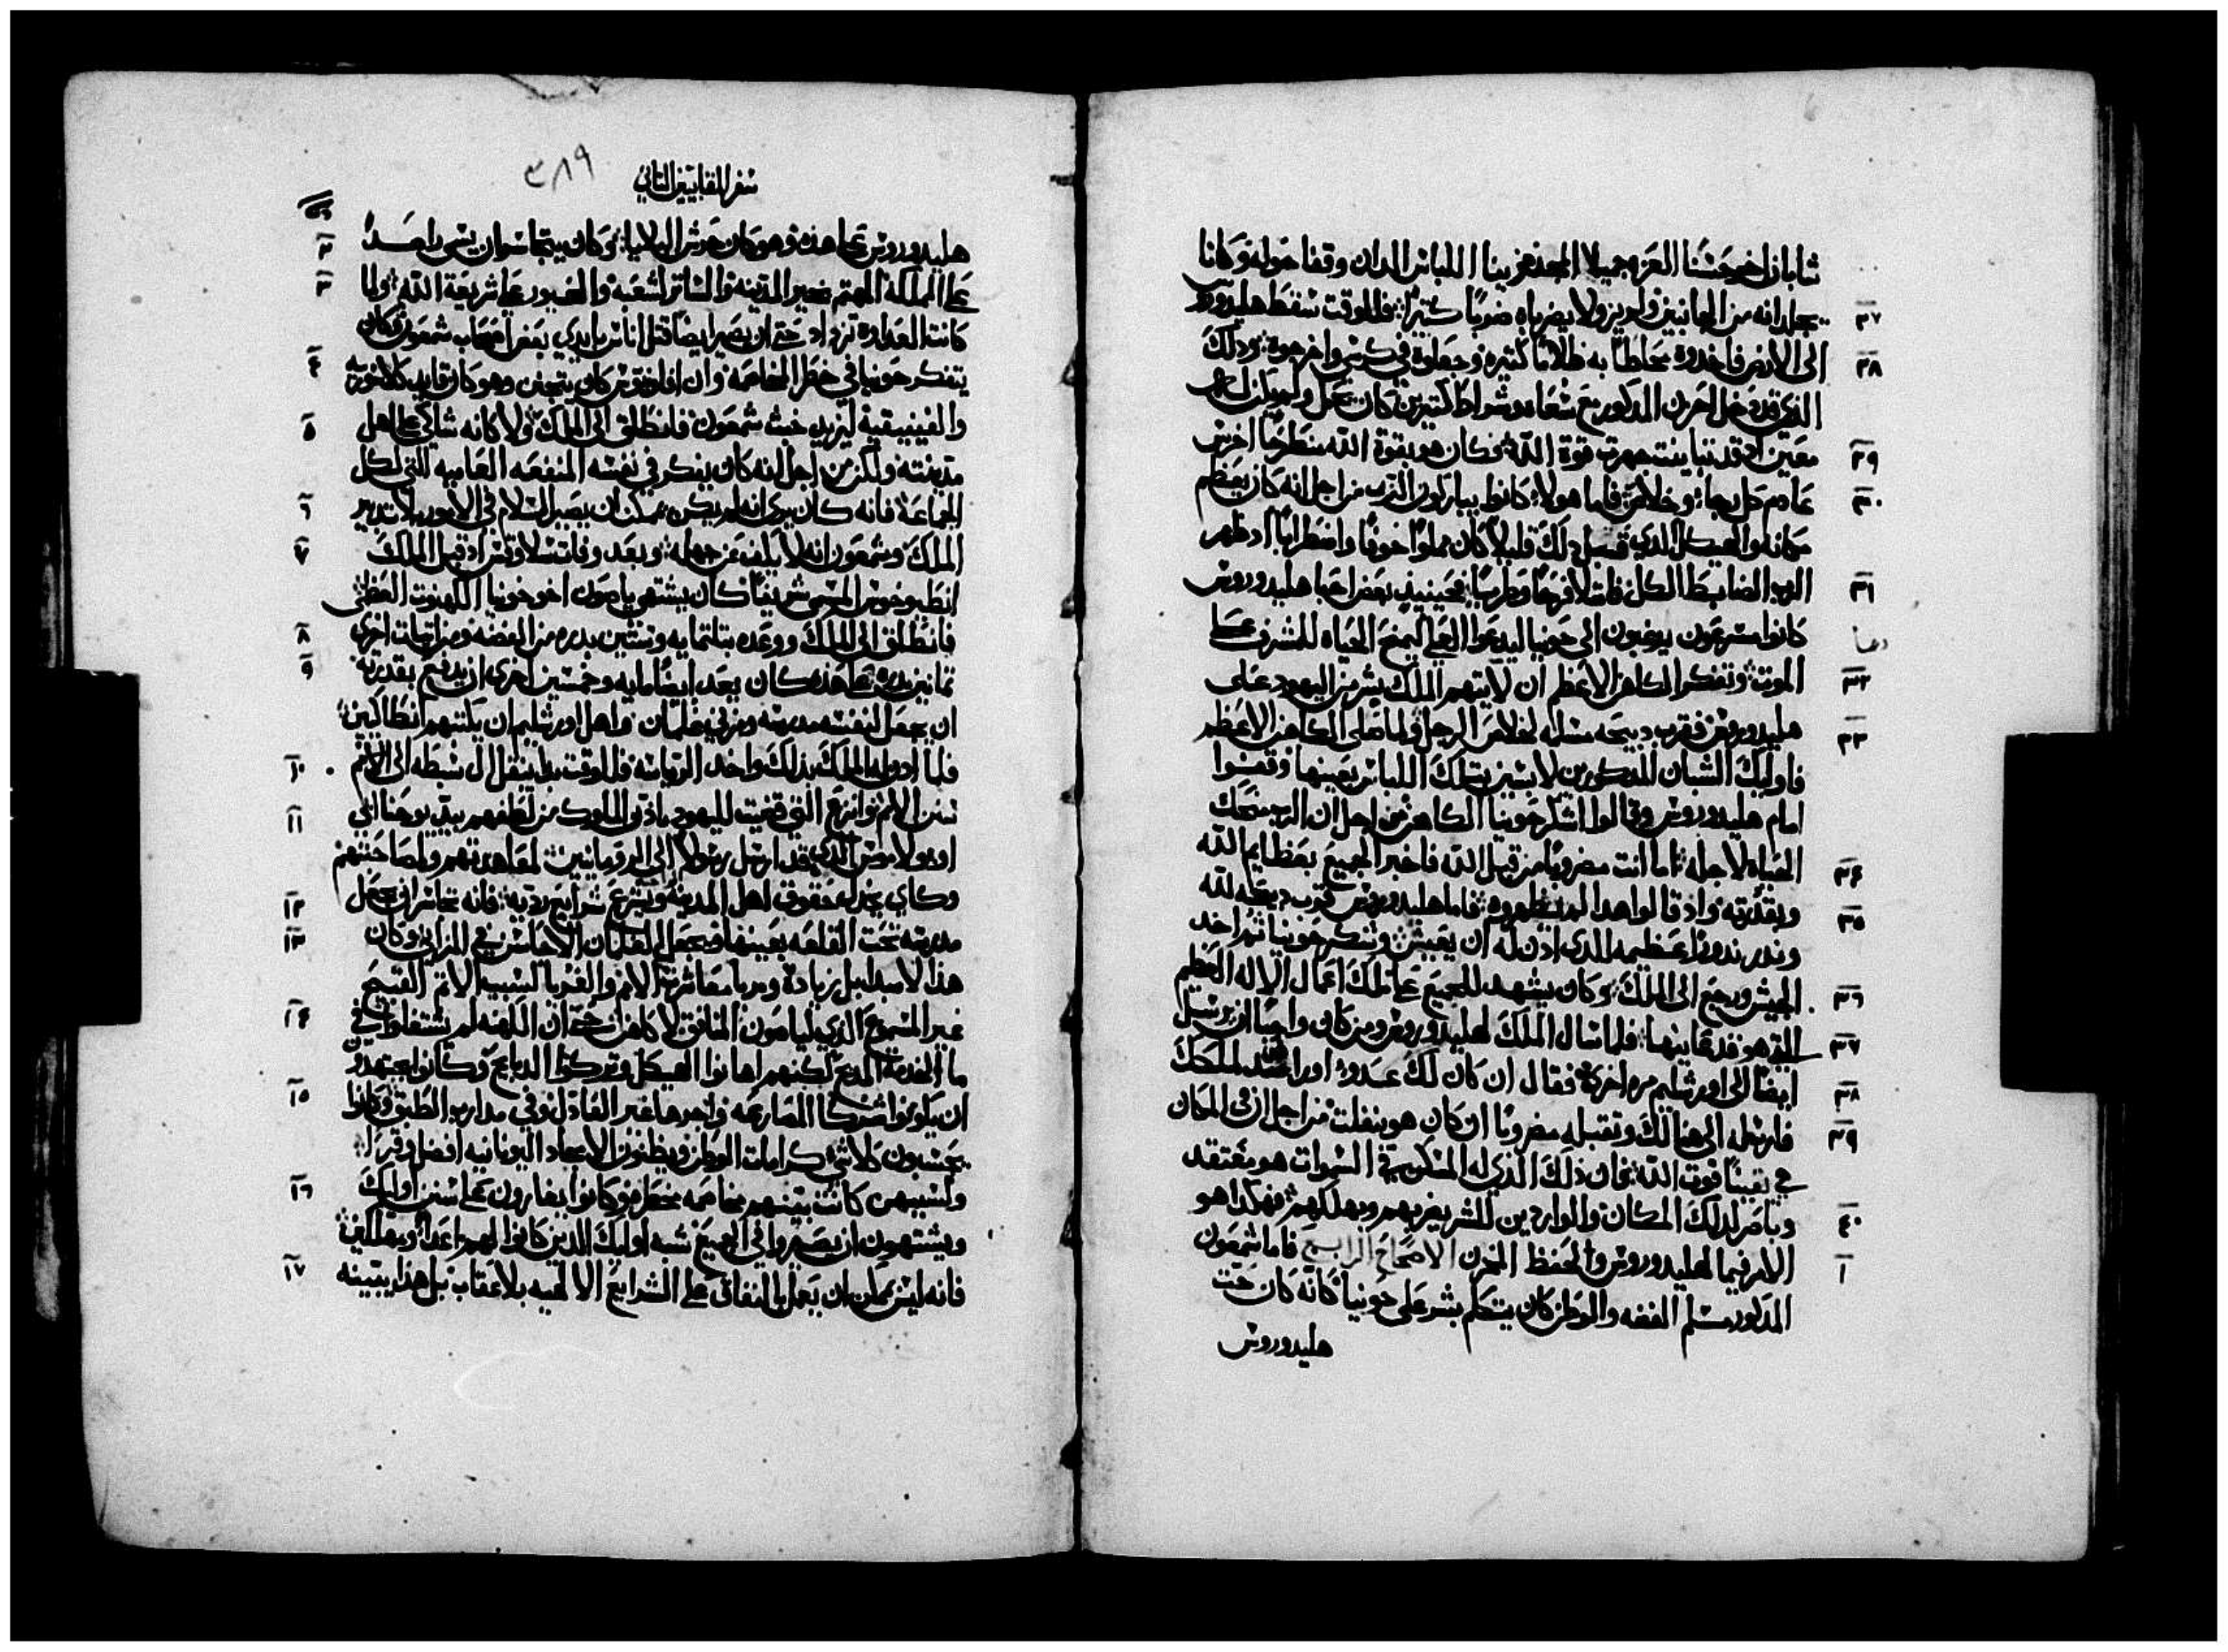 شابان اخر حسنا العزه جميلا المجد مزينا اللباس اللدان وقفا حوله وكانا
٢٧ يجلدانه من الجانبين ولم يزولا يضرباه ضربا كتيرا فللوقت سقط هليدورس
٢٨ الى الارض فاخدوه محاطا به ظلاما كتيره وجعلوه في كرسي واخرجوه وذلك
الذي قد دخل الخزن المدكور مع سعاه وشراط كتيرين كان يحمل ولم يكن له
٢٩ معين اد قد تباينت جهرت قوة الله فكان هو بقوة الله منطرحا اخرس
٣٠ عادم كل رجا وخلاص فاما هولا كانوا يباركون الرب من اجل انه كان يعظم
مكانه والهيكل الدي قبل دلك قليلا كان مملوا خوفا واضطرابا اد ظهر
٣١ الرب الضابط الكل فامتلا فرحا وطربا فحينيد بعض احبا هليدوروس
كانوا مسرعون يرغبون الى حونيا ليدعوا العلي ليمنح الحياه للمشرف على
٣٢ الموت وتفكر الكاهن الاعظم ان لا يتهم الملك بشر من اليهود على
٣٣ هليدوروس فقرب دبيحه مسله لخلاص الرجل ولما صلى الكاهن الاعظم
فاوليك الشبان المدكورين لابسين بتلك اللباس بعينها وقفوا
امام هليدوروس وقالوا اشكر حونيا الكاهن من اجل ان الرب منحك
٣٤ الحياه لاجله اما انت مضروبا من قبل الله فاخبر الجميع بعظايم الله
٣٥ وبقدرته واد قالوا هدا لم يظهروه فاما هليدوروس قرب دبيحه لله
وندر ندورا عظيمه للدي ادن له ان يعيش وشكر حونيا ثم اخد
٣٦ الجيش ورجع الى الملك وكان يشهد للجميع على تلك اعمال الاله العظيم
٣٧ التي هو قد عاينها فلما سال الملك لهليدوروس من كان واجبا ان يرسل
٣٨ ايضا الى اورشليم مره اخرى فقال ان كان لك عدو او راصد لملكك
٣٩ فارسله الى هنالك وتقبله مضروبا ان كان هو ينفلت من اجل ان في المكان
هي يقينا قوت الله فان ذلك الذي له المسكن في السموات هو متفقد
٤٠ وناصر لدلك المكان والواردين للشر يضربهم ويهلكهم فهكدا هو
١ الامر فيما لهليدوروس والحفظ الخزن الاصحاح الرابع فاما شمعون
المدكور مسلم الفضه والوطن كان يتكلم بشر على حونيا كانه كان حت
هليدوروس
سفر المقابيين التاني
٣٨٩
هليدوروس على هده وهو كان محرش البلايا وكان يتجاسر ان يسمى راصد
على المملكه المهتم بخير المدينه والساتر لشعبه والغيور على شريعة الله ولما
٣ كانت العداوه تزداد حتى ان يصير ايضا قتل اناس بايدي بعض اصحاب شمعون فكان
٤ يتفكر حونيا في خطر المخاصمه وان افلونيوس كان يتجنن وهو كان قايد كلاسوريه
٥ والفينيقيه ليزيد خبث شمعون فانطلق الى الملك ولا كانه شاكي على اهل
مدينته ولكن من اجل انه كان يفكر في نفسه المنفعه العاميه التي لكل
٦ الجماعه فانه كان يرى انه لم يكن يمكن ان يصير السلام في الامور بلا تدبير
٧ الملك وشمعون انه لا يكف عن جهله وبعد وفات سلاوقس اد قبل الملك
انطيوخوس المسمى شريفا كان يشتهي ياصون اخو حونيا الكهنوت العظمى
٨ فانطلق الى الملك ووعده بتلتمايه وستين بدره من الفضه ومن اتيات اخرى
٩ تمانين بدره على هده كان يعد ايضا مايه وخمسين اخرى ان يدفع بقدرته
ان يجعل لنفسه مدرسه ومربى غلمان واهل اورشليم ان يكتبهم انطاكيين
١٠ فلما ادن له الملك بدلك واخد الرياسه فللوقت بدا ينقل ال سبطه الى الامم
١١ سنن الامم وانزع التي قضيت لليهود بادن الملوك من لطفهم بيد يوحنا ابي
اوبولاموس الدي قد ارسل رسولا الى الرومانيين لمعاهدتهم ولمصاحبتهم
١٢ وكاي يبطل حقوق اهل المدينه ويشرع شرايع رديه فانه تجاسر ان يجعل
١٣ مدرسه تحت القلعه بعينها ويجعل الغلمان الاحاسن في الزاني وكان
هدا لا مبدا بل زياده ومربا معاشرة الامم والغربا لسبب الاتم القبيح
١٤ غير المسموع الدي لياصون المنافق لا كاهن حتى ان الكهنه لم يشتغلوا في
ما الخدمة المدبح لكنهم اهانوا الهيكل وتركوا الدبايح وكانوا مجتهدين
١٥ ان يكونوا شركا المصارعه واجرها غير العادل وفي مدارب الطبق وكانوا
يحسبون كلا شي كرامات الوطن ويظنون الامجاد اليونانيه افضل وقرا
١٦ ولسببهن كانت بينهم مخاصمه مخطره وكانوا يغارون على سنن اوليك
ويشتهون ان يصيروا في الجميع شبه اوليك الدين كانوا لهم اعدا ومهالكين
١٧ فانه ليس يمكن ان يعمل بالنفاق على الشرايع الالهيه بلا عقاب بل هدا يبينه